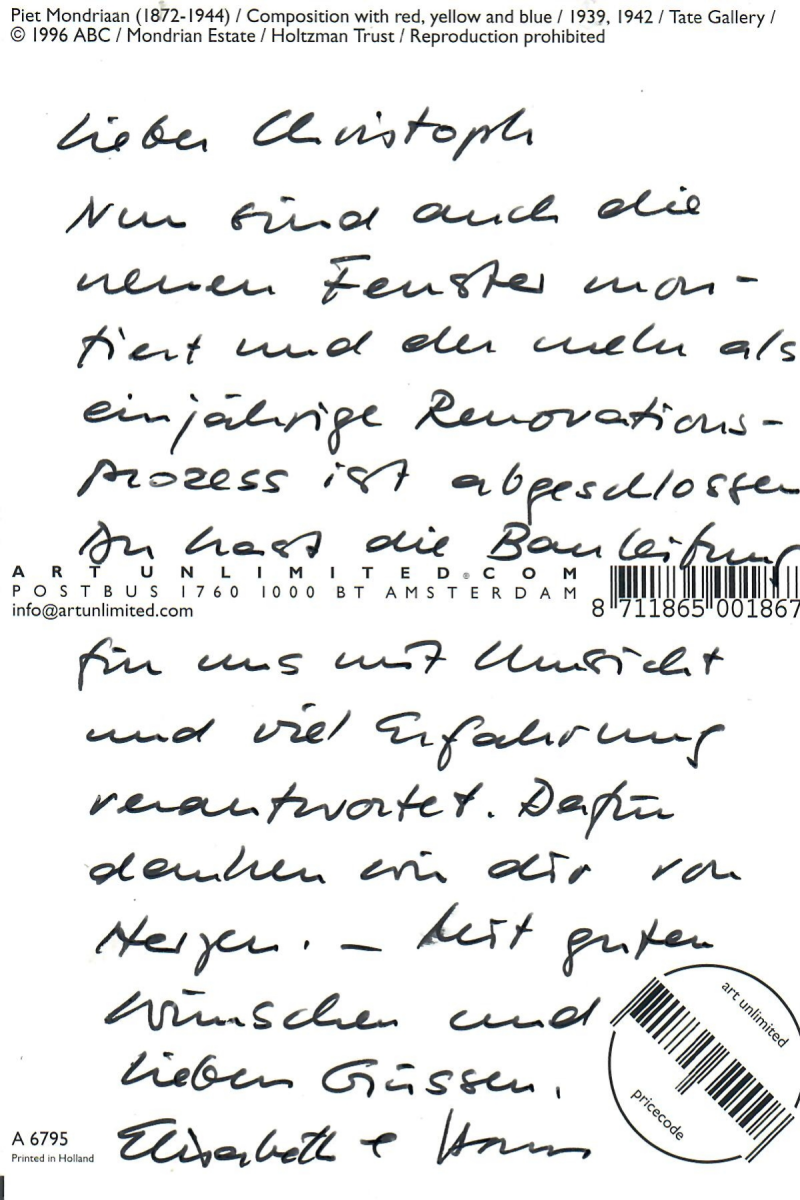 Piet Mondriaan (1872-1944) / Composition with red, yellow and blue / 1939, 1942 / Tate Gallery /
© 1996 ABC / Mondrian Estate / Holtzman Trust / Reproduction prohibited
Lieber Christoph
Nun sind auch die
neuen Fenster mon-
tiert und der mehr als
einjährige Renovations-
prozess ist abgeschlossen
Du hast die Bauleitung
ART UNLIMITED.COM
POSTBUS 1760 1000 BT AMSTERDAM
info@artunlimited.com
8 711865 001867
für uns mit Umsicht
und viel Erfahrung
verantwortet. Dafür
danken wir dir von
Herzen. – Mit guten
Wünschen und
lieben Grüssen,
Elisabeth + Hans
art unlimited
pricecode
A 6795
Printed in Holland